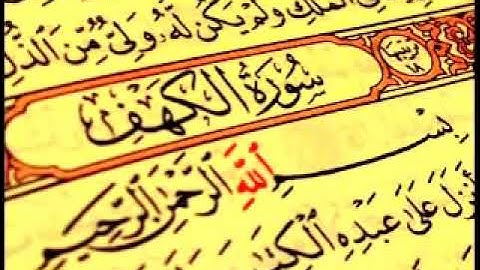 فِي ٱلْمُلْكِ وَلَمْ يَكُن لَّهُۥ وَلِىٌّ مِّنَ ٱلذُّلِّ
سُورَةُ ٱلْكَهْفِ
بِسْمِ ٱللَّهِ ٱلرَّحْمَٰنِ ٱلرَّحِيمِ
أَنزَلَ عَلَىٰ عَبْدِهِ ٱلْكِتَٰبَ